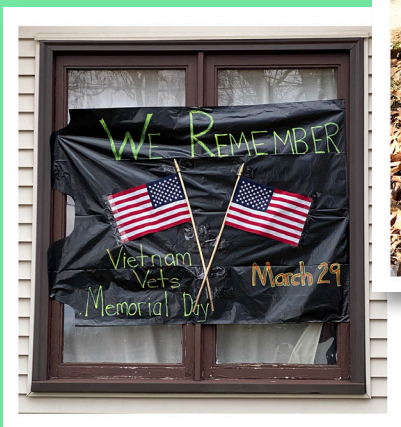 WE REMEMBER
Vietnam
Vets
Memorial Day
March 29